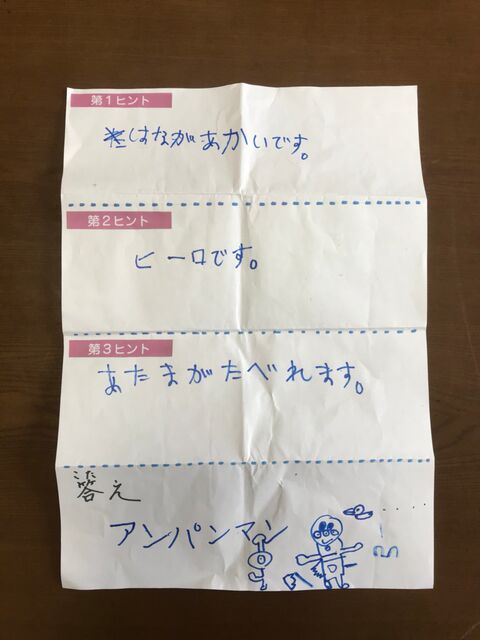 第1ヒント
はながあかいです。
第2ヒント
ヒーロです。
第3ヒント
あたまがたべれます。
こた
答え
アンパンマン